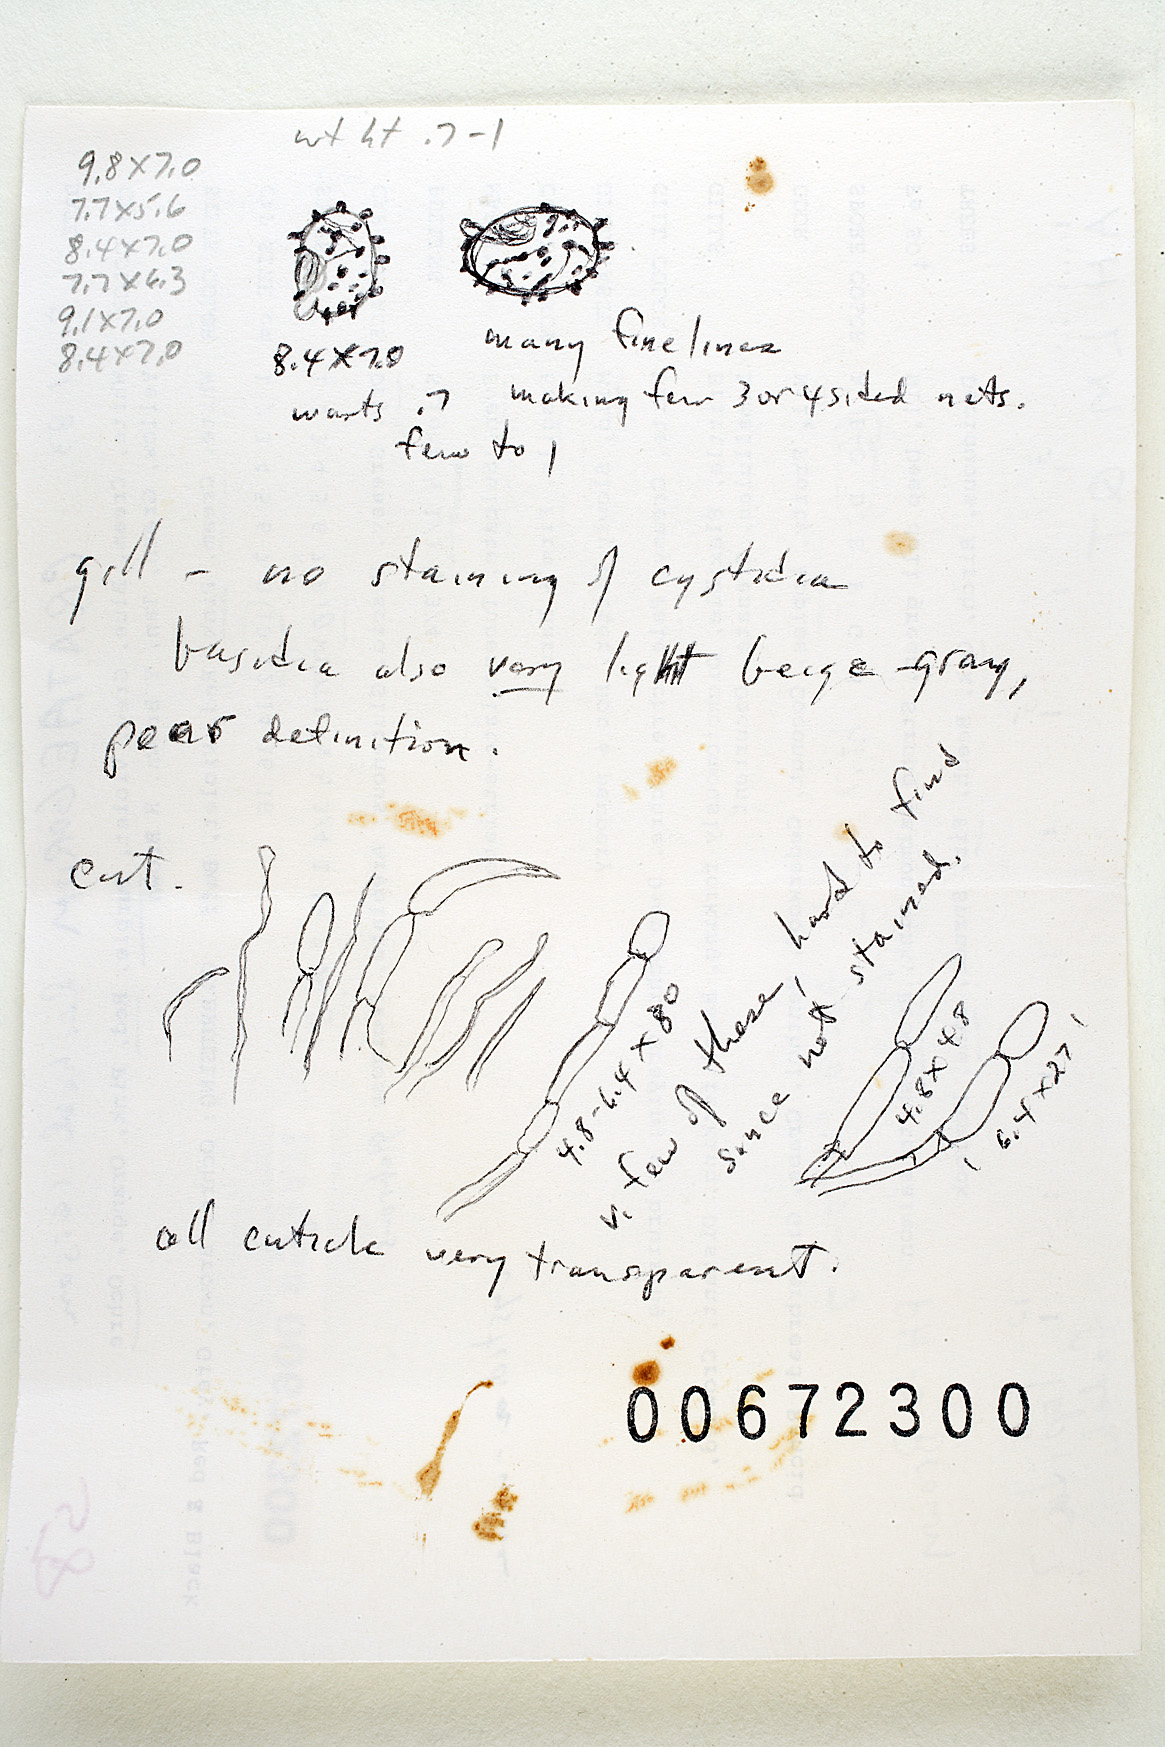 wt ht .7-1
9.8x7.0
7.7x5.6
8.4x7.0
7.7x6.3
9.1x7.0
8.4x7.0
8.4x7.0
warts .7
few to 1
many fine lines
making few 3 or 4 sided nets.
gill - no staining of cystidia
basidia also very light beige gray,
poor definition.
cut.
4.8-6.4 x 80
v. few of these, hard to find
since not stained.
4.8 x 48
6.4 x 27
all cuticle very transparent.
00672300
58
Red & Black